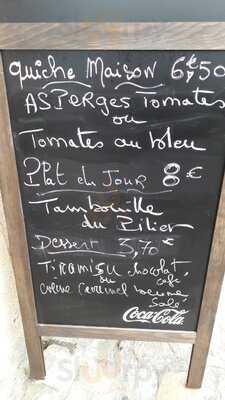 Quiche Maison 6€50
ASPerges Tomates
ou
Tomates au bleu
Plat du Jour 8€
Tambouille
du Pilier
Dessert 3,70 €
Tiramisu chocolat,
ou café
crème caramel beurre
Salé
Coca-Cola